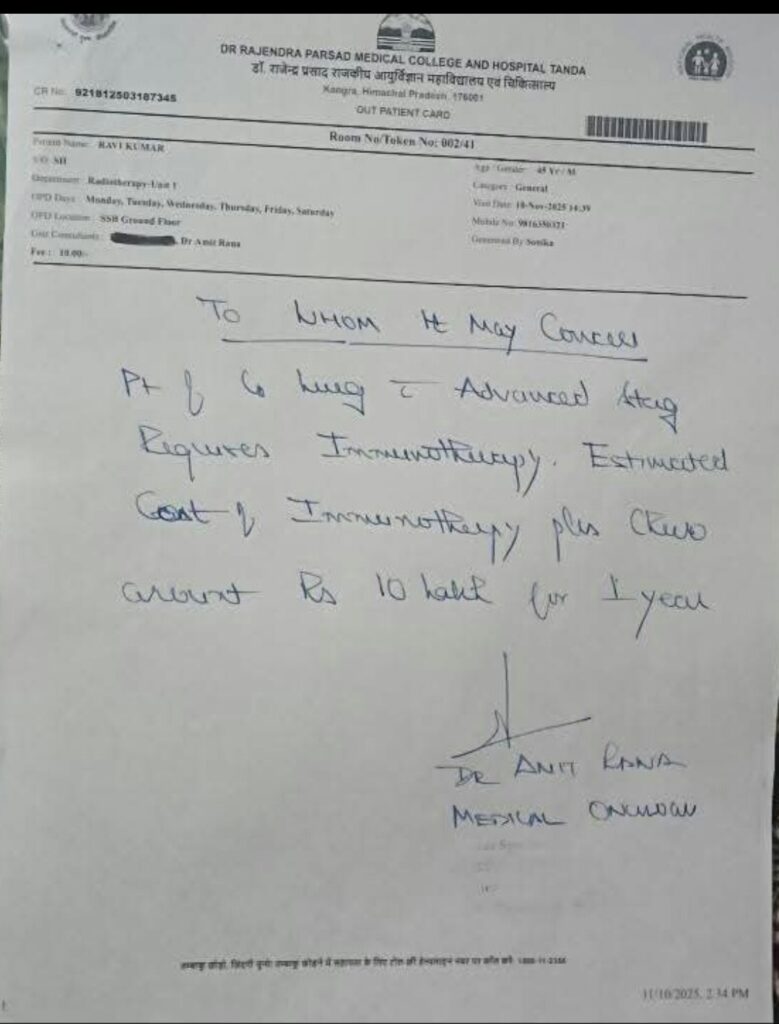 DR RAJENDRA PARSAD MEDICAL COLLEGE AND HOSPITAL TANDA
डॉ. राजेन्द्र प्रसाद राजकीय आयुर्विज्ञान महाविद्यालय एवं चिकित्सालय
Kangra, Himachal Pradesh, 176001
OUT PATIENT CARD
CR No: 921812503187345
Room No/Token No: 002/41
Patient Name: RAVI KUMAR
S/O: SH
Department: Radiotherapy-Unit 1
OPD Days: Monday, Tuesday, Wednesday, Thursday, Friday, Saturday
OPD Location: SSB Ground Floor
Unit Consultants: Dr Amit Rana
Fee: 10.00/-
Age / Gender: 45 Yr / M
Category: General
Visit Date: 10-Nov-2025 14:39
Mobile No: 9816350321
Generated By Sonika
To WHOM It May Concern
Pt of Ca Lung c̄ Advanced Stag
Requires Immunotherapy. Estimated
Cost of Immunotherpy plus Chemo
arount Rs 10 lakh for 1 year
DR AMIT RANA
MEDICAL
11/10/2025, 2:34 PM